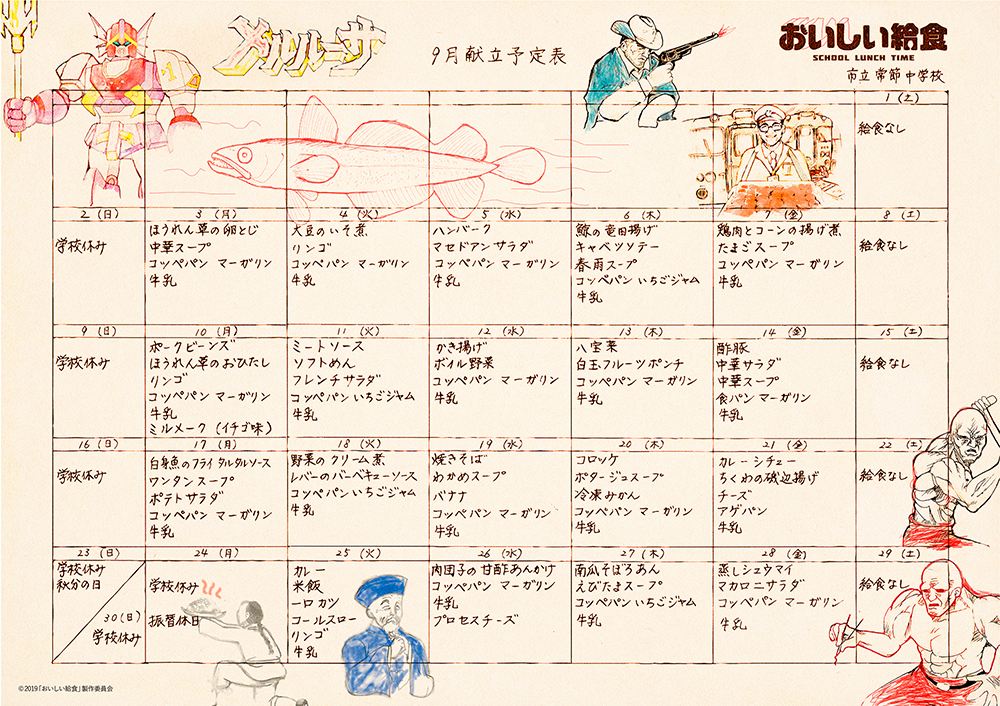 メルルーサ
9月献立予定表
おいしい給食
SCHOOL LUNCH TIME
市立常節中学校
1 (土)
給食なし
2 (日)
学校休み
3 (月)
ほうれん草の卵とじ
中華スープ
コッペパン マーガリン
牛乳
4 (火)
大豆のいそ煮
リンゴ
コッペパン マーガリン
牛乳
5 (水)
ハンバーグ
マセドアンサラダ
コッペパン マーガリン
牛乳
6 (木)
鯨の竜田揚げ
キャベツソテー
春雨スープ
コッペパン いちごジャム
牛乳
7 (金)
鶏肉とコーンの揚げ煮
たまごスープ
コッペパン マーガリン
牛乳
8 (土)
給食なし
9 (日)
学校休み
10 (月)
ポークビーンズ
ほうれん草のおひたし
リンゴ
コッペパン マーガリン
牛乳
ミルメーク (イチゴ味)
11 (火)
ミートソース
ソフトめん
フレンチサラダ
コッペパン いちごジャム
牛乳
12 (水)
かき揚げ
ボイル野菜
コッペパン マーガリン
牛乳
13 (木)
八宝菜
白玉フルーツポンチ
コッペパン マーガリン
牛乳
14 (金)
酢豚
中華サラダ
中華スープ
食パン マーガリン
牛乳
15 (土)
給食なし
16 (日)
学校休み
17 (月)
白身魚のフライ タルタルソース
ワンタンスープ
ポテトサラダ
コッペパン マーガリン
牛乳
18 (火)
野菜のクリーム煮
レバーのバーベキューソース
コッペパン いちごジャム
牛乳
19 (水)
焼きそば
わかめスープ
バナナ
コッペパン マーガリン
牛乳
20 (木)
コロッケ
ポタージュスープ
冷凍みかん
コッペパン マーガリン
牛乳
21 (金)
カレーシチュー
ちくわの磯辺揚げ
チーズ
アゲパン
牛乳
22 (土)
給食なし
23 (日)
学校休み
秋分の日
30 (日)
学校休み
24 (月)
学校休み
振替休日
25 (火)
カレー
米飯
一口カツ
コールスロー
リンゴ
牛乳
26 (水)
肉団子の甘酢あんかけ
コッペパン マーガリン
牛乳
プロセスチーズ
27 (木)
南瓜そぼろあん
えびたまスープ
コッペパン いちごジャム
牛乳
28 (金)
蒸しシュウマイ
マカロニサラダ
コッペパン マーガリン
牛乳
29 (土)
給食なし
©2019「おいしい給食」製作委員会